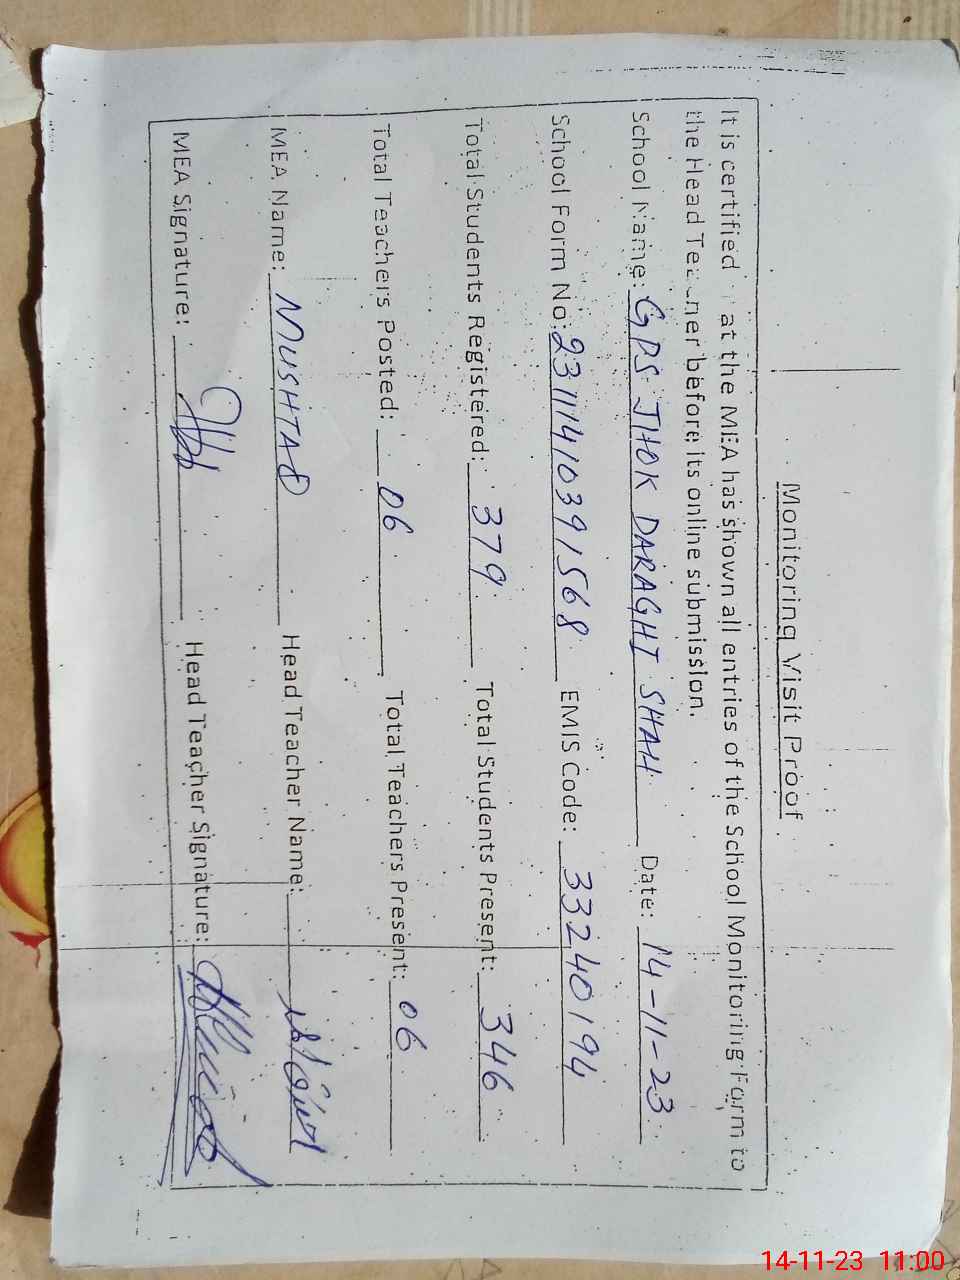 Monitoring Visit Proof
It is certified at the MEA has shown all entries of the School Monitoring Form to
the Head Teacher before its online submission.
School Name: GPS JHOK DARAGHI SHAH Date: 14-11-23
School Form No: 23111410391568 EMIS Code: 33240194
Total Students Registered: 379 Total Students Present: 346
Total Teachers Posted: 06 Total Teachers Present: 06
MEA Name: MUSHTAQ Head Teacher Name:
MEA Signature: Head Teacher Signature:
14-11-23 11:00